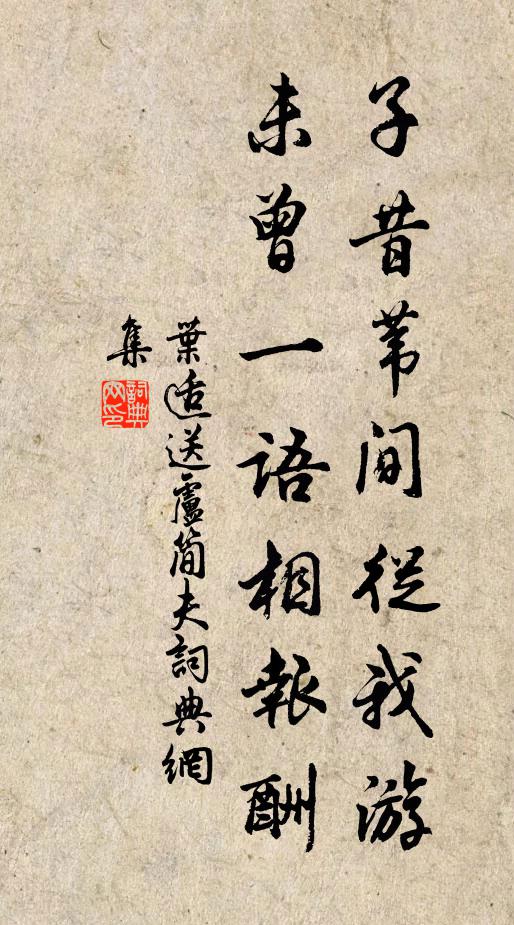 子昔苇间从我游
未曾一语相報酬
葉适送盧簡夫詞典網
集
詞典
网印